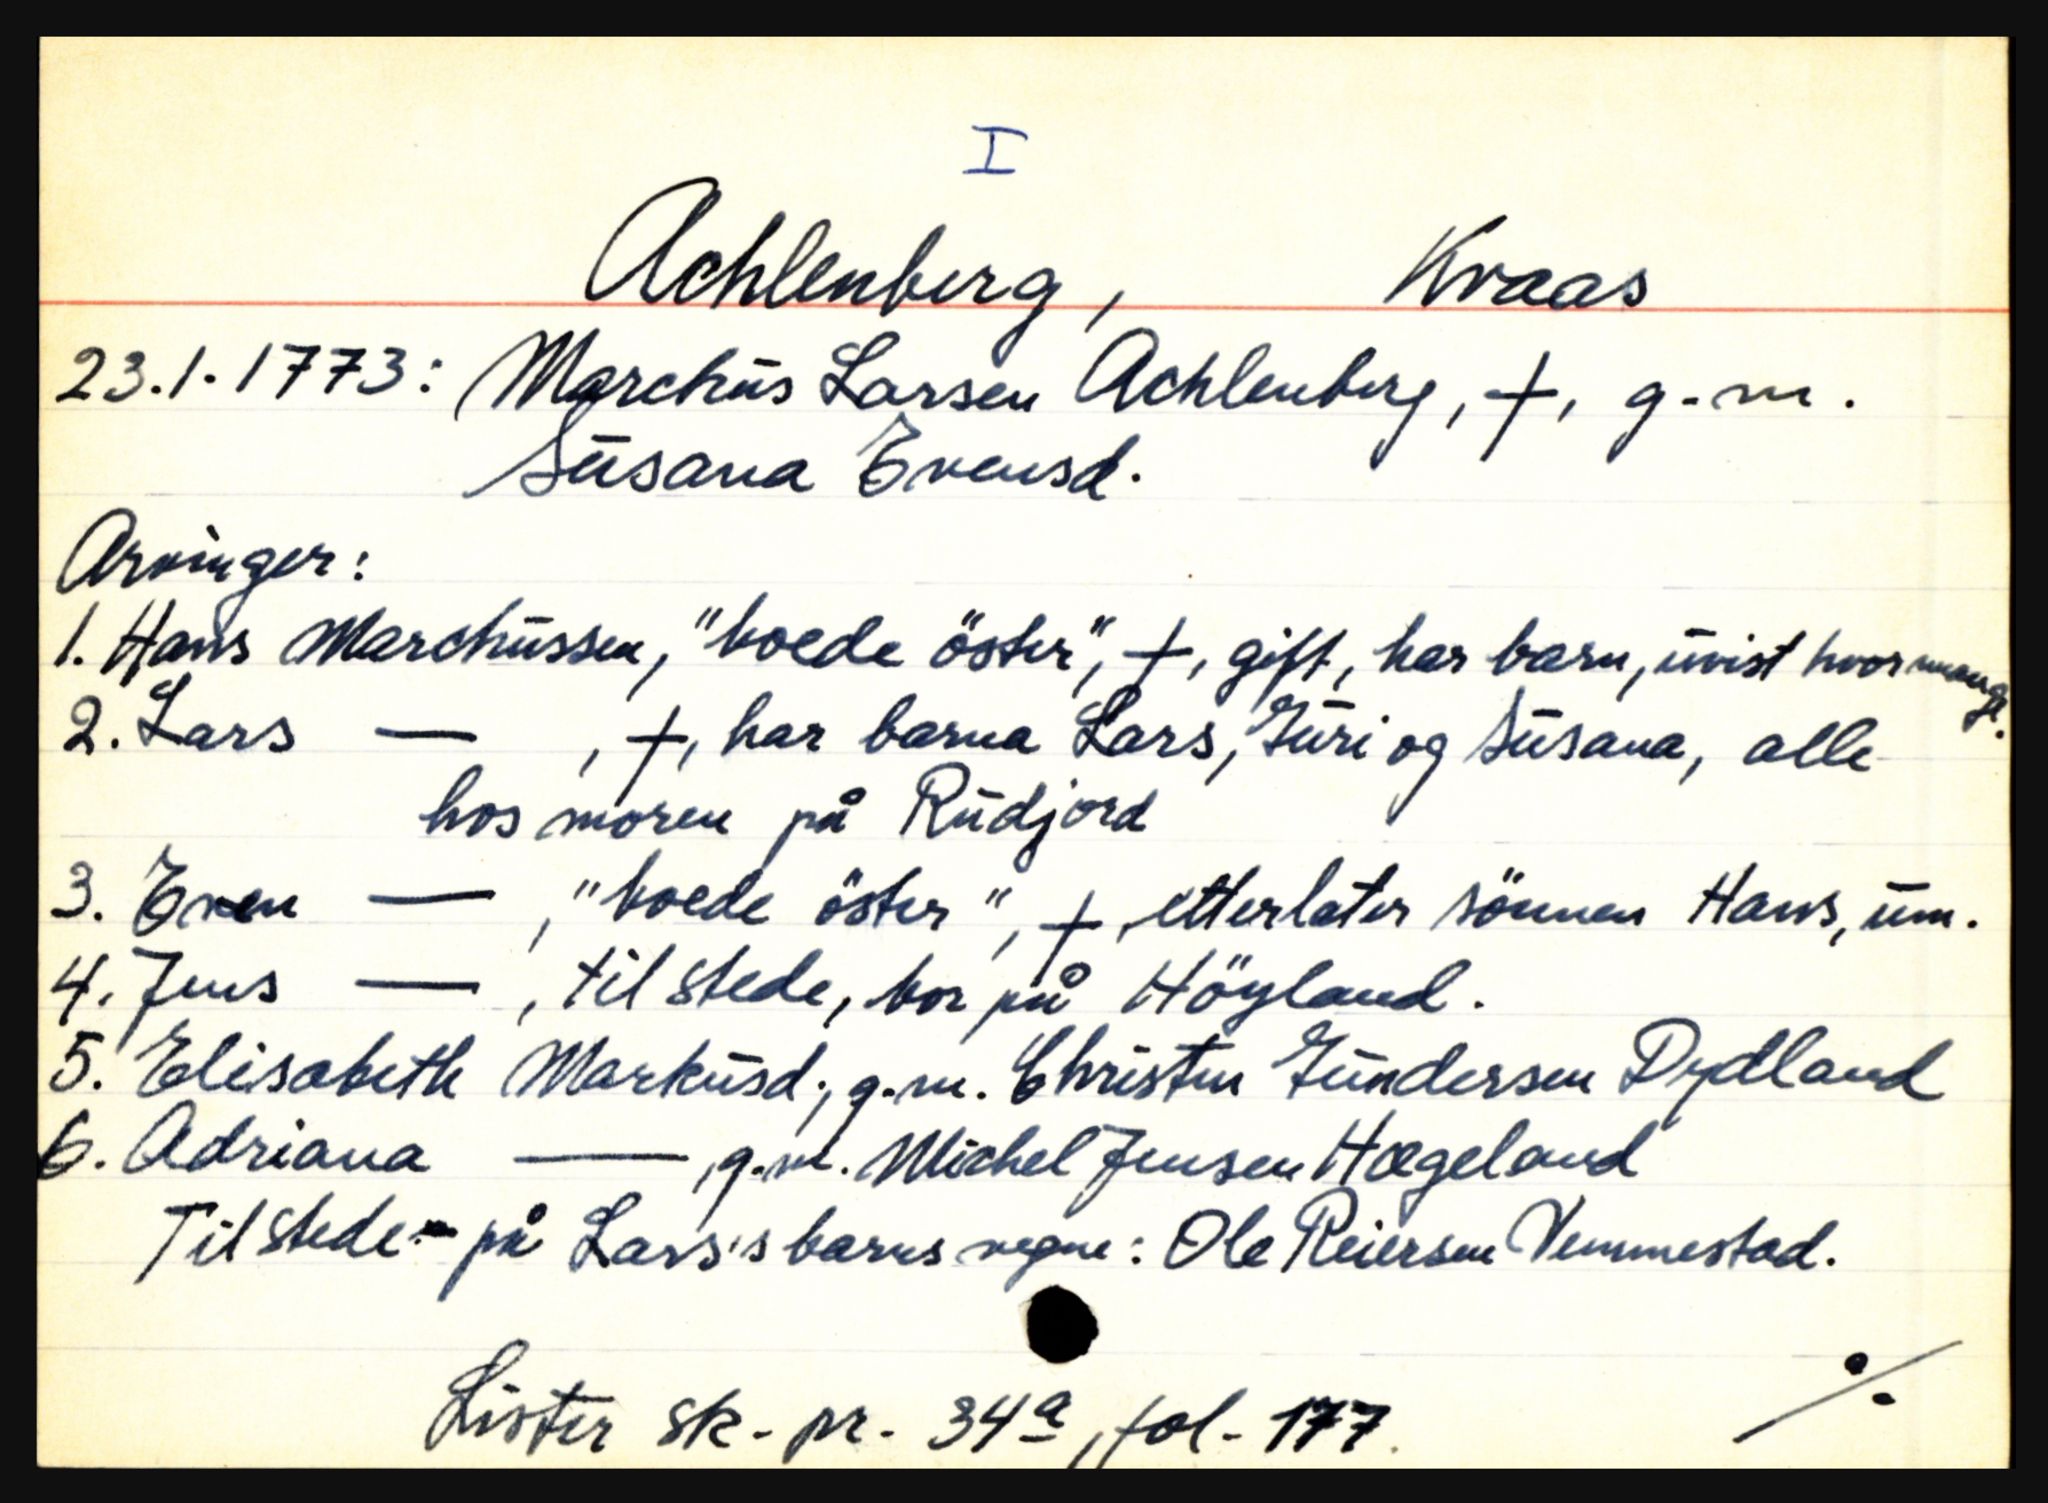 I
Achlenberg, Kvaas
23.1.1773: Marchus Larsen Achlenberg, †, g.m.
Susana Evensd.
Arvinger:
1. Hans Marchussen, "boede öster", †, gift, har barn, uvist hvor mange.
2. Lars — , †, har barna Lars, Guri og Susana, alle
hos moren på Rudjord
3. Even — , "boede öster", †, etterlater sönnen Hans, um.
4. Jens — , til stede, bor på Höyland.
5. Elisabeth Markusd., g.m. Christen Gundersen Dydland
6. Adriana — , g.m. Michel Jensen Hægeland
Til stede på Lars's barns vegne: Ole Reiersen Vemmestad.
Lister sk. pr. 34a, fol. 177.
./.